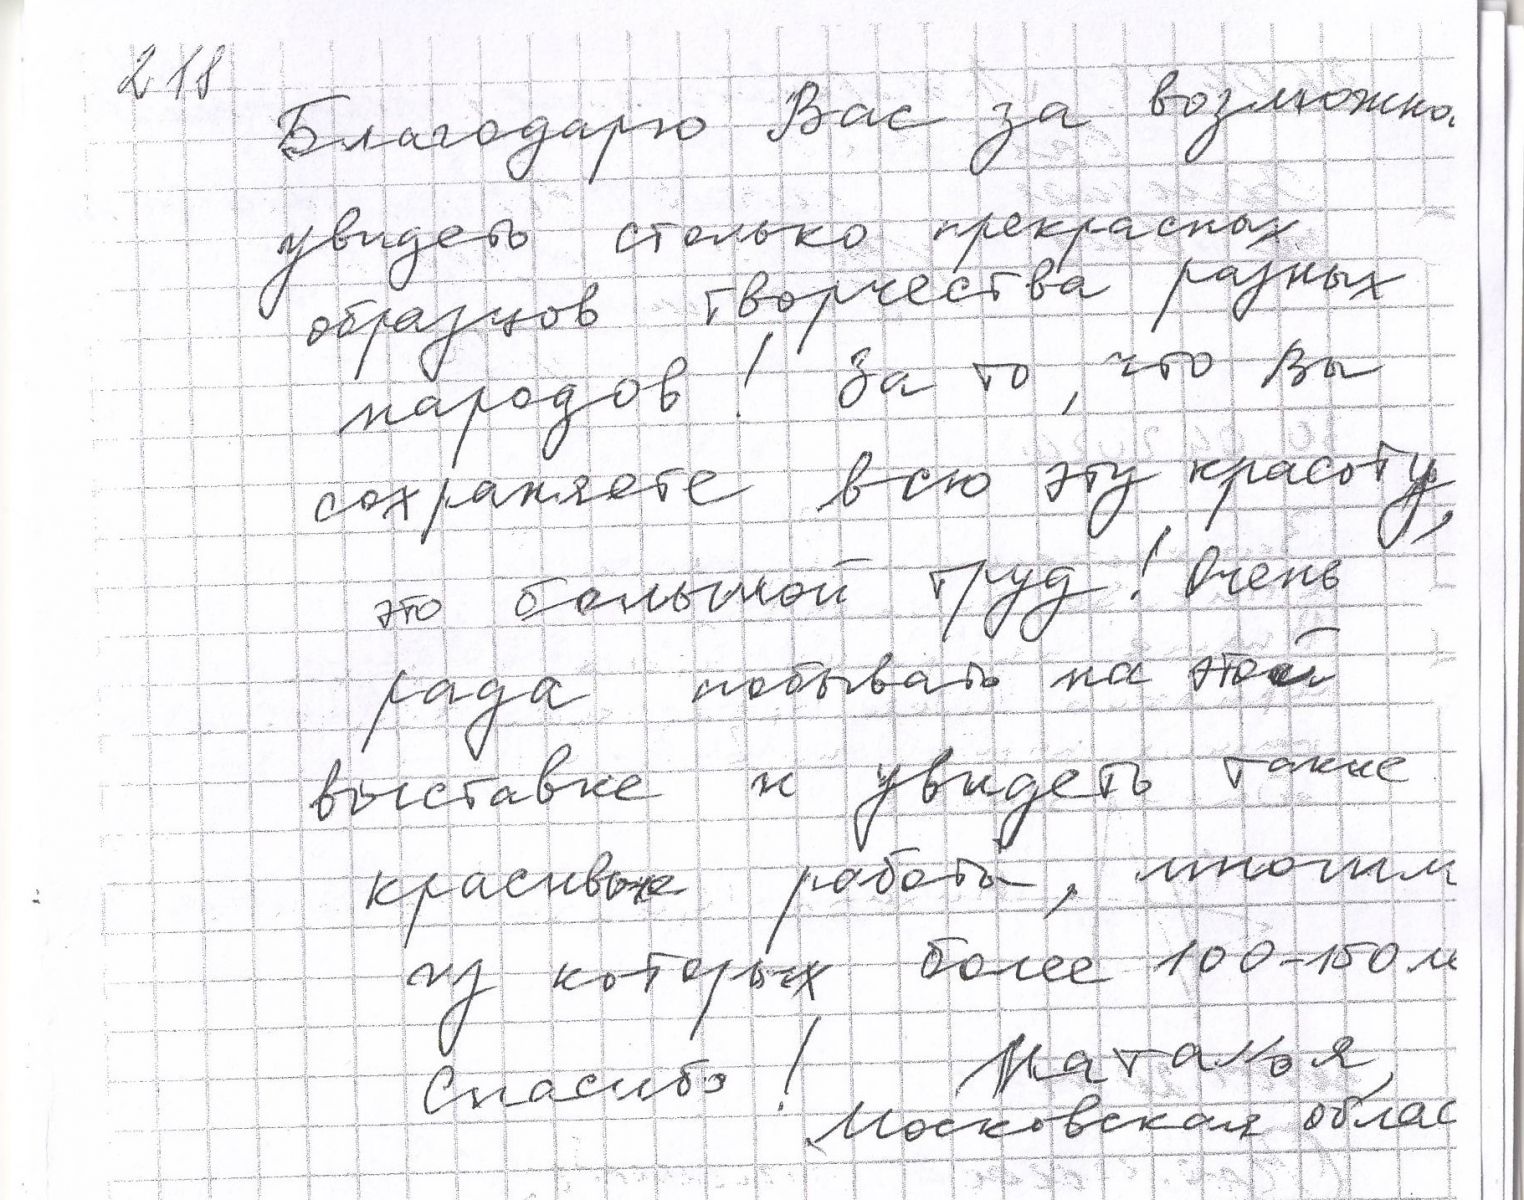 218
Благодарю Вас за возможно
увидеть столько прекрасных
образцов творчества разных
народов! За то, что Вы
сохраняете всю эту красоту,
это большой труд! Очень
рада побывать на этой
выставке и увидеть такие
красивые работы, многим
из которых более 100-150 ле
Спасибо! Наталья,
Московская облас